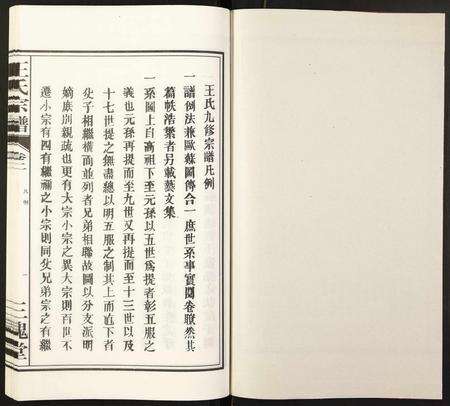 王氏九修宗譜凡例
一譜例法兼歐蘇圖傳合一庶世系事實開卷瞭然其
篇帙浩繁者另載藝文集
一系圖上自高祖下至元孫以五世為提者彰五服之
義也元孫再提而至九世又再提而至十三世以及
十七世提之無盡總以明五服之制其上而直下者
父子相繼橫而並列者兄弟相聯故圖以分支派明
嫡庶別親疏也更有大宗小宗之異大宗則百世不
遷小宗有四有繼禰之小宗則同父兄弟宗之有繼
王氏宗譜
卷二
凡例
一
三槐堂